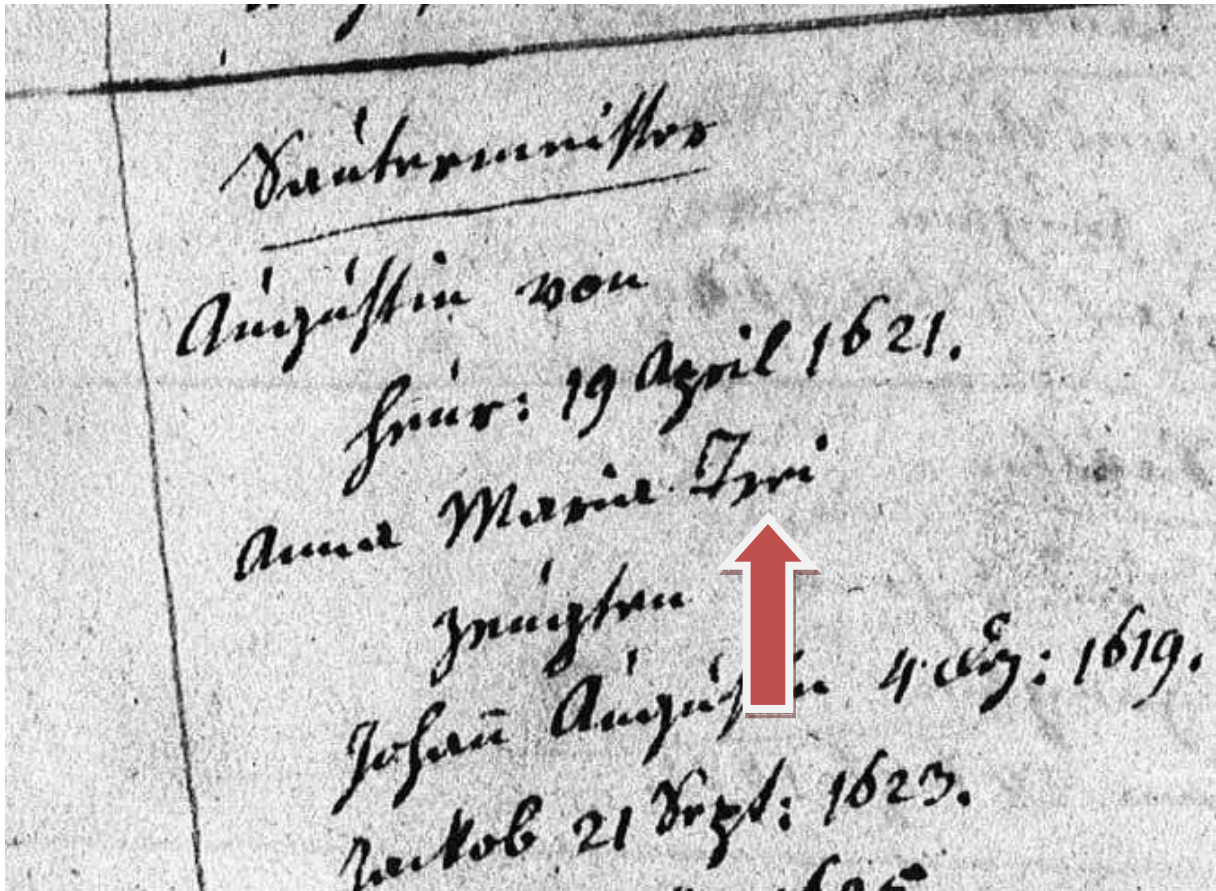 Sautermeister
Augustin von
heur: 19 April 1621.
Anna Maria Teri
zeugten
Johañ Augustin 4 Aug: 1619.
Jackob 21 Sept: 1623.